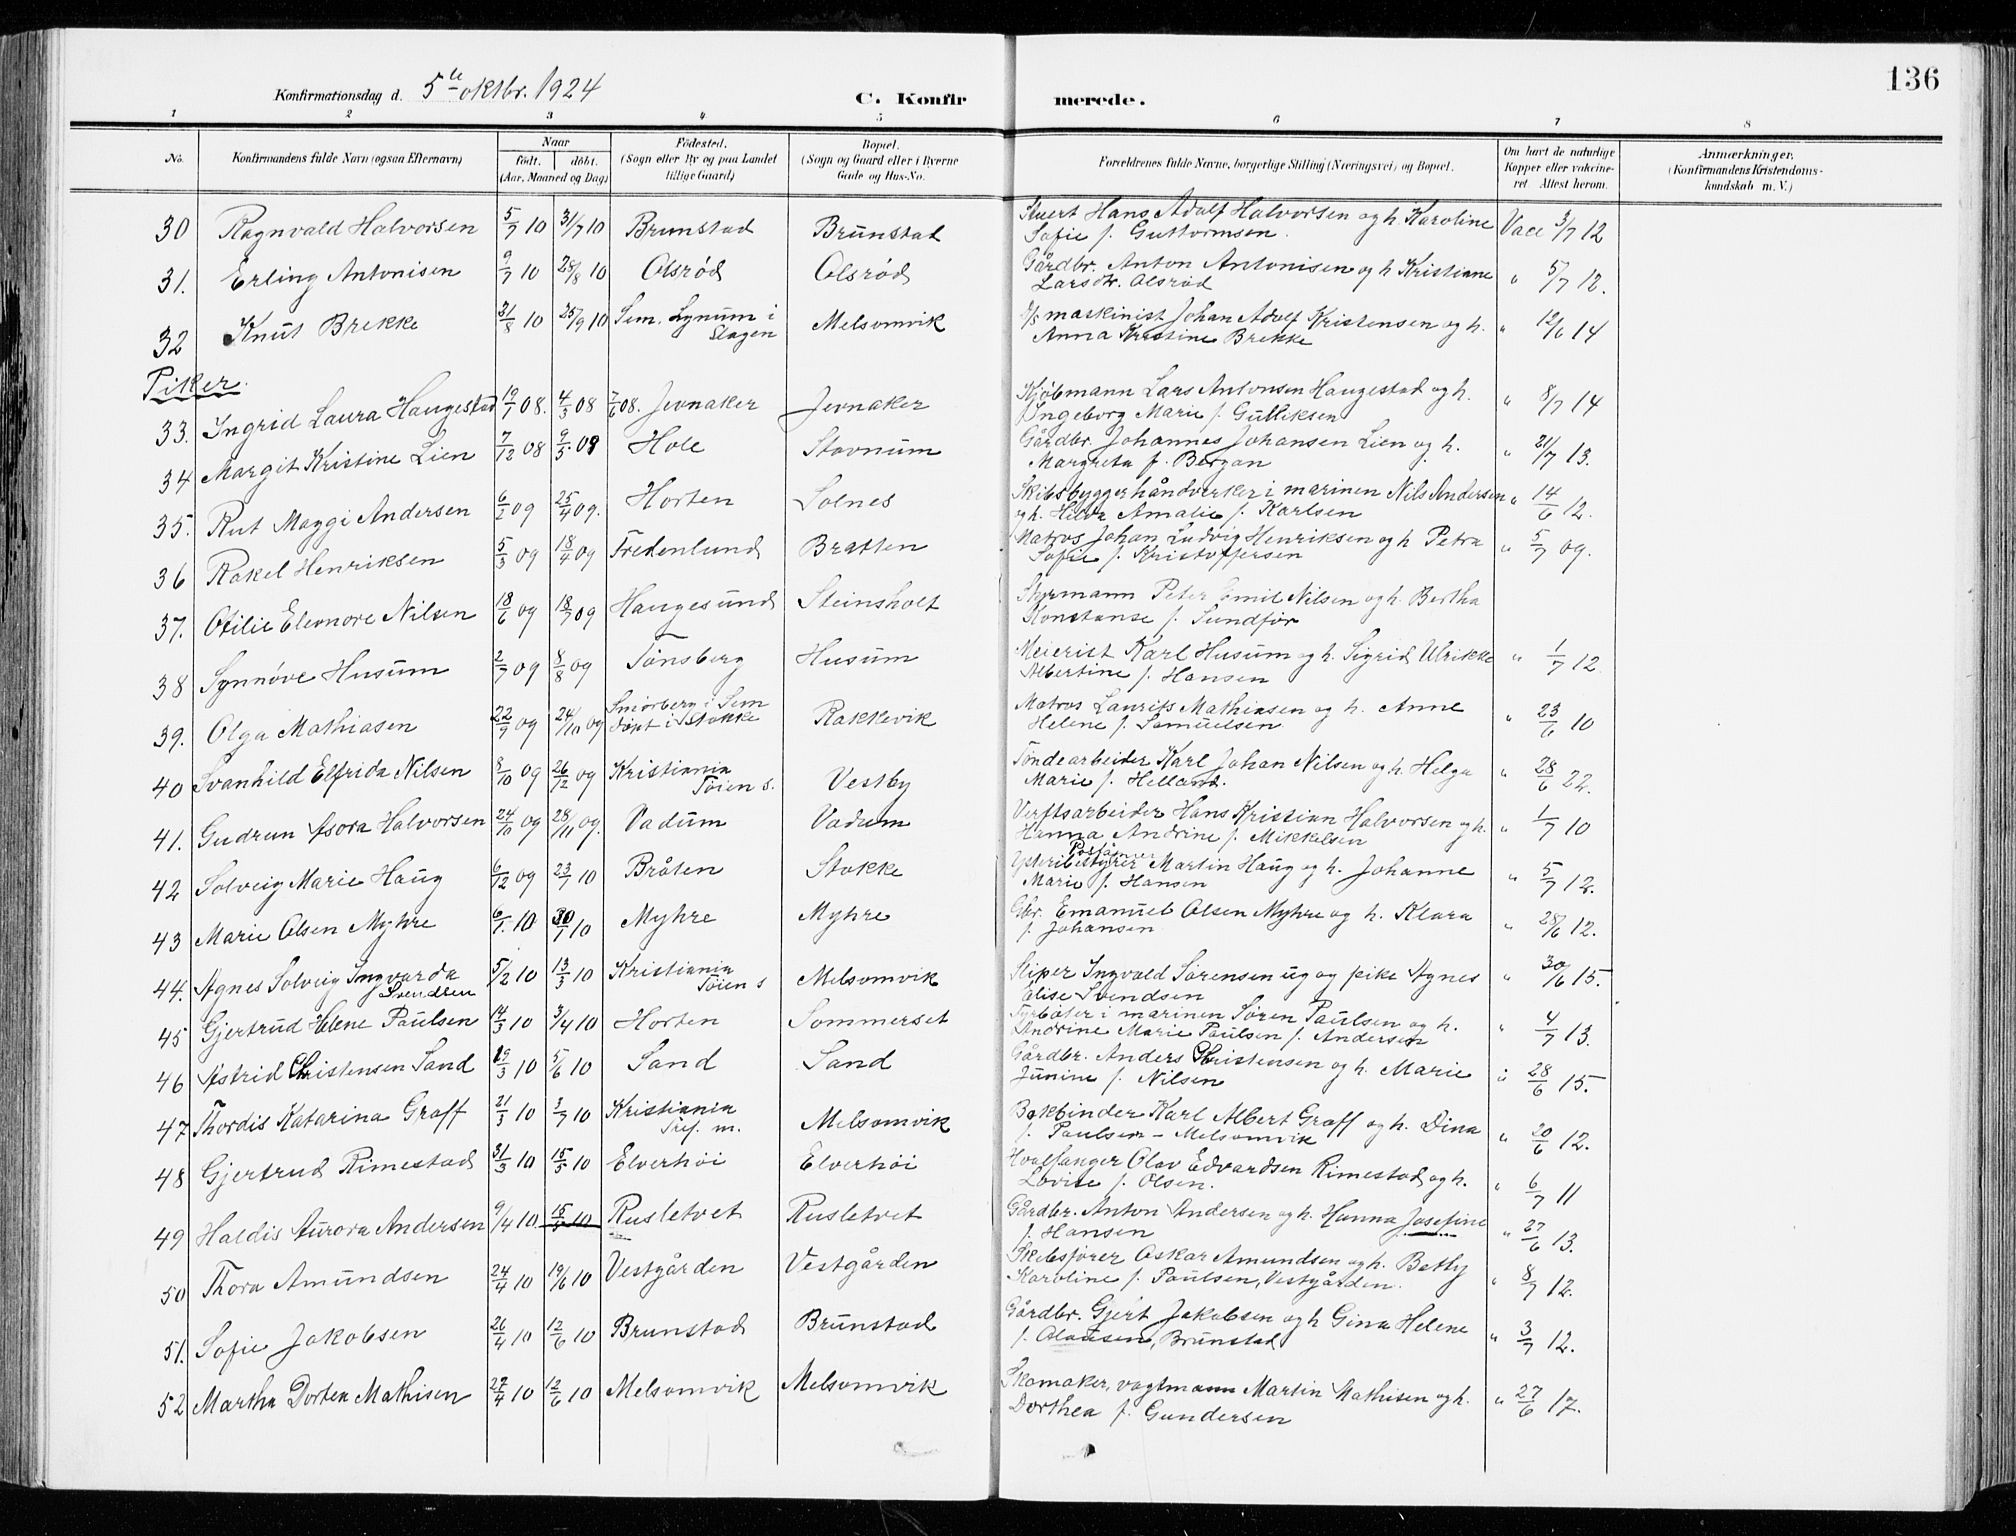 136
Konfirmationsdag d. 5te oktbr. 1924
C. Konfirmerede.
1 2 3 4 5 6 7 8
No. Konfirmandens fulde Navn (ogsaa Efternavn) Naar født. døbt. (Aar, Maaned og Dag) Födested. (Sogn eller By og paa Landet tillige Gaard) Bopæl. (Sogn og Gaard eller i Byerne Gade og Hus-No. Forældrenes fulde Navne, borgerlige Stilling (Næringsvei) og Bopæl. Om havt de naturlige Kopper eller vakcineret Attest herom. Anmærkninger. (Konfirmandens Kristendomskundskab m. V.)
30 Ragnvald Halvorsen 5/7 10 31/7 10 Brunstad Brunstad Stuert Hans Adolf Halvorsen og h. Karoline Sofie f. Guttormsen. Vacc 3/7 12
31. Erling Antonisen 9/7 10 28/8 10 Olsrød Olsrød Gårdbr. Anton Antonisen og h Kristiane Larsdtr. Olsrød " 5/7 12.
32 Knut Brekke 31/8 10 25/9 10 Sem. Lynum i Slagen Melsomvik maskinist Johan Adolf Kristensen og h. Anna Kristine Brekke " 12/6 14
Piker.
33. Ingrid Laura Haugestad 19/1 08. 4/3 08 7/6 08. Jevnaker Jevnaker Kjøbmann Lars Antonsen Haugestad og h. Ingeborg Marie f. Gulliksen " 8/7 14
34 Margit Kristine Lien 7/12 08 9/5 09 Hole Stavnum Gårdbr. Johannes Johansen Lien og h. Margreta f. Bergan " 21/7 13.
35. Rut Maggi Andersen 6/2 09 25/4 09. Horten Solnes Skibsbyggerhåndverker i marinen Nils Andersen og h. Hilda Amalie f. Karlsen " 14/6 12.
36 Rakel Henriksen 5/3 09 18/4 09 Fredenlund Bratten Matros Johan Ludvig Henriksen og h Petra Sofie f. Kristoffersen " 5/7 09.
37. Otilie Eleonore Nilsen 18/6 09 18/7 09 Haugesund Steinsholt Styrmann Peter Emil Nilsen og h. Bertha Konstanse f. Sundfør
38 Synnøve Husum 2/7 09 8/8 09 Tønsberg Husum Meierist Karl Husum og h. Sigrid Ulrikke Albertine f. Hansen " 1/7 12
39. Olga Mathiasen 22/9 09 24/10 09 Smørberg i Sem døpt i Stokke Rakkevik Matros Laurits Mathiasen og h. Anne Helene f. Samuelsen " 23/6 10
40 Svanhild Elfrida Nilsen 8/10 09 26/12 09 Kristiania Tøien s. Vestby Tøndearbeider Karl Johan Nilsen og h. Helga Marie f. Helland. " 28/6 22.
41. Gudrun Isora Halvorsen 24/10 09 28/11 09. Vadum Vadum Verftsarbeider Hans Kristian Halvorsen og h. Hanna Andrine f. Mikkelsen " 1/7 10
42 Solveig Marie Haug 6/12 09 23/7 10 Bråten Stokke Martin Haug og h. Johanne Marie f. Hansen " 5/7 12.
43 Marie Olsen Myhre 6/1. 10 30/1 10 Myhre Myhre Gbr. Emanuel Olsen Myhre og h. Klara f. Johansen " 28/6 12.
44. Agnes Solveig Ingvarda Svendsen 5/2 10 13/3 10 Kristiania Tøien s Melsomvik Sliper Ingvald Sørensen ug og pike Agnes Elise Svendsen " 30/6 15.
45 Gjertrud Helene Paulsen 14/3 10 3/4 10 Horten Sommerset Fyrbøter i marinen Søren Paulsen og h. Andrine Marie Paulsen f. Andersen " 4/7 13.
46 Astrid Christensen Sand 19/3 10 5/6 10 Sand Sand Gårdbr. Anders Christensen og h. Marie Junine f. Nilsen " 28/6 15.
47 Thordis Katarina Graff 21/3 10 3/7 10 Kristiania Tref. m. Melsomvik Bokbinder Karl Albert Graff og h. Dina f. Paulsen - Melsomvik " 20/6 12.
48 Gjertrud Rimestad 31/3 10 15/5 10 Elverhøi Elverhøi Hvalfanger Olav Edvardsen Rimestad og h. Lovise f. Olsen. " 6/7 11
49 Haldis Aurora Andersen 9/4 10. 15/5 10 Rusletvet Rusletvet Gårdbr. Anton Andersen og h. Hanna Josefine f. Hansen " 27/6 13.
50 Thora Amundsen 24/4 10 19/6 10 Vestgården Vestgården Skibsfører Oskar Amundsen og h. Betty Karoline f. Paulsen, Vestgården. " 8/7 12.
51. Sofie Jakobsen 26/4 10 12/6 10 Brunstad Brunstad Gårdbr. Gjert Jakobsen og h Gina Helene f. Olausen, Brunstad " 3/7 12.
52 Martha Dorten Mathisen 27/4 10 12/6 10 Melsomvik Melsomvik Skomaker, vagtmann Martin Mathisen og h. Dorthea f. Gundersen " 27/6 17.